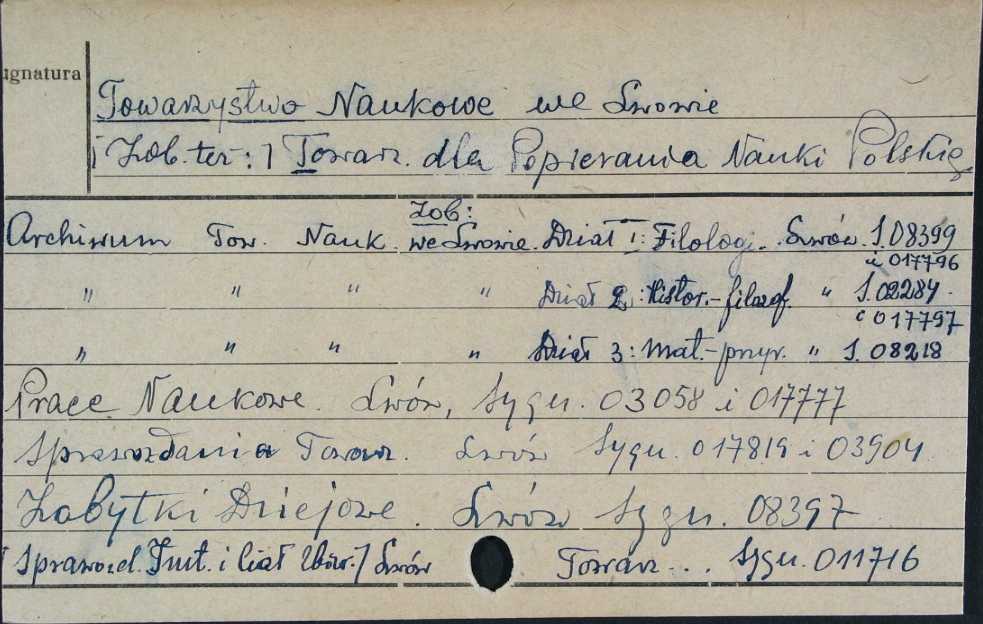 ignatura
Towarzystwo Naukowe we Lwowie
[Zob. też:] Towarz. dla Popierania Nauki Polskiej
Zob:
Archiwum Tow. Nauk. we Lwowie. Dział 1: Filologj. Lwów. S.08399
i 017796
" " " " Dział 2: Histor.-filozof. " S.02284.
i 017797
" " " " Dział 3: Mat.-przyr. " S. 08218
Prace Naukowe. Lwów, Sygn. 03058 i 017777
Sprawozdania Towarz. Lwów Sygn. 017819 i 03904
Zabytki Dziejowe. Lwów Sygn. 08397
[Sprawozd. i Lwów Towarz... Sygn. 011716